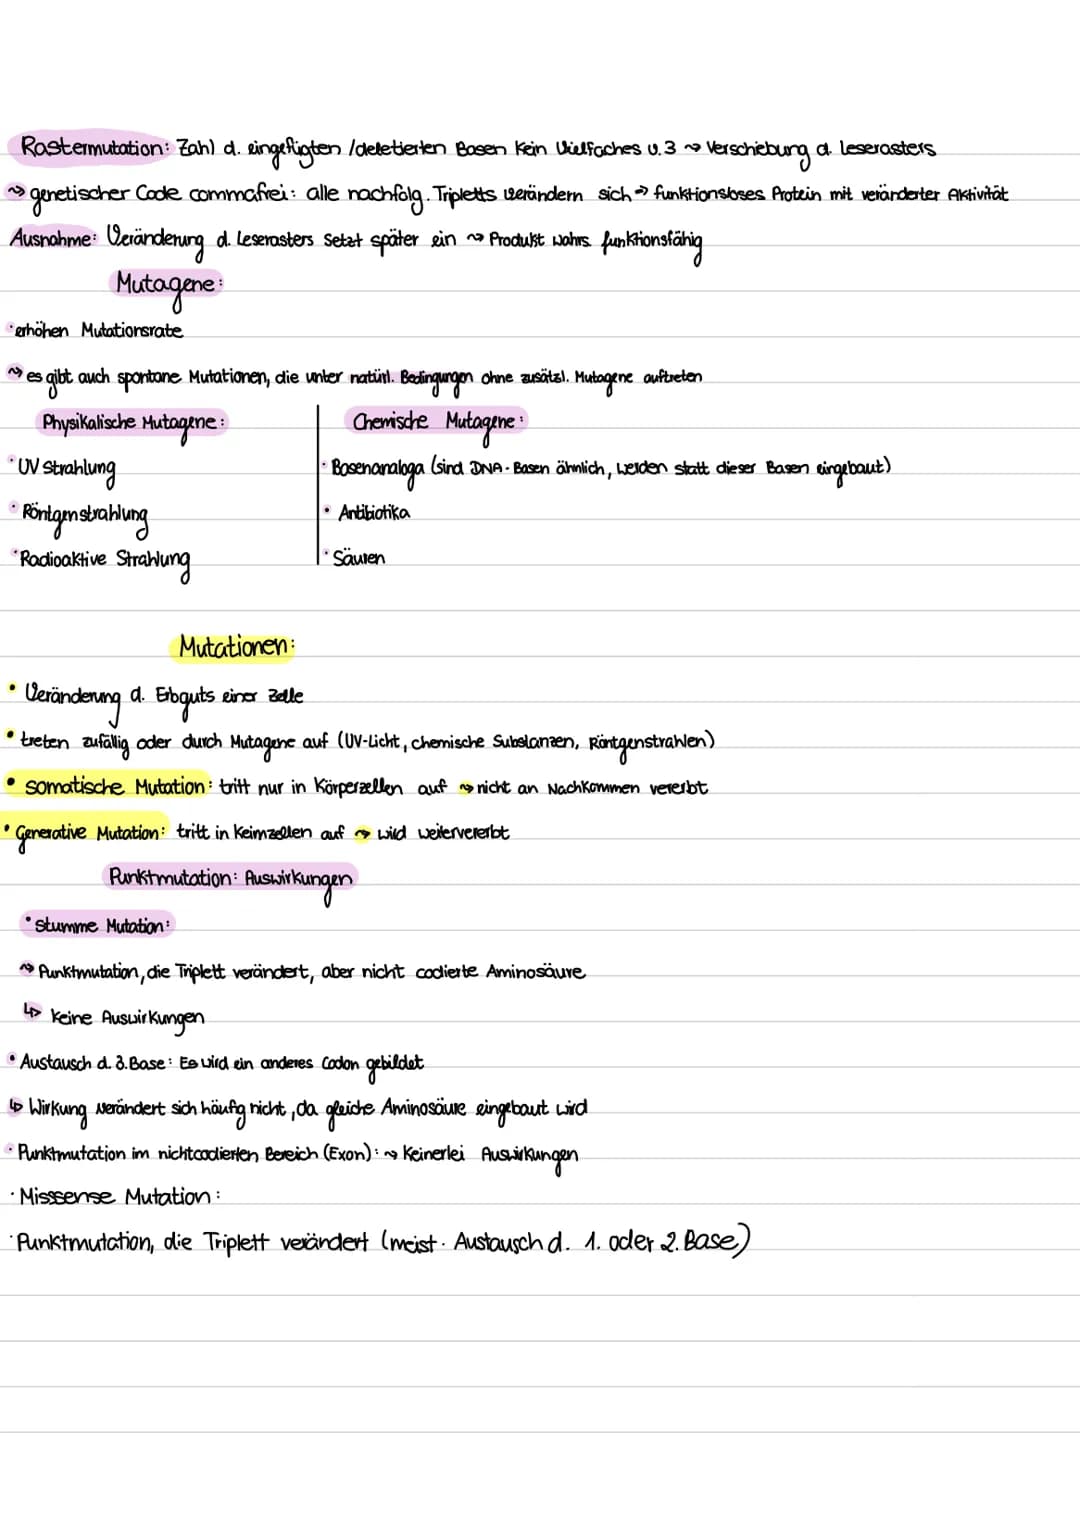 Rastermutation: Zahl d. eingefügten /deletierten Basen kein Vielfaches v. 3 ~> Verschiebung d. Leserasters
~> genetischer Code commafrei: alle nachfolg. Tripletts verändern sich -> funktionsloses Protein mit veränderter Aktivität
Ausnahme: Veränderung d. Leserasters setzt später ein ~> Produkt wahrs. funktionsfähig
Mutagene:
• erhöhen Mutationsrate
~> es gibt auch spontane Mutationen, die unter natürl. Bedingungen ohne zusätzl. Mutagene auftreten
Physikalische Mutagene:
• UV Strahlung
• Röntgenstrahlung
• Radioaktive Strahlung
Chemische Mutagene:
• Basenanaloga (sind DNA-Basen ähnlich, werden statt dieser Basen eingebaut)
• Antibiotika
• Säuren
Mutationen:
• Veränderung d. Erbguts einer Zelle
• treten zufällig oder durch Mutagene auf (UV-Licht, chemische Substanzen, Röntgenstrahlen)
• somatische Mutation: tritt nur in Körperzellen auf ~> nicht an Nachkommen vererbt
• Generative Mutation: tritt in Keimzellen auf ~> wird weitervererbt
Punktmutation: Auswirkungen
• Stumme Mutation:
~> Punktmutation, die Triplett verändert, aber nicht codierte Aminosäure
↳ Keine Auswirkungen
• Austausch d. 3. Base: Es wird ein anderes Codon gebildet
↳ Wirkung verändert sich häufig nicht, da gleiche Aminosäure eingebaut wird
• Punktmutation im nichtcodierten Bereich (Exon): ~> Keinerlei Auswirkungen
• Misssense Mutation:
• Punktmutation, die Triplett verändert (meist. Austausch d. 1. oder 2. Base)